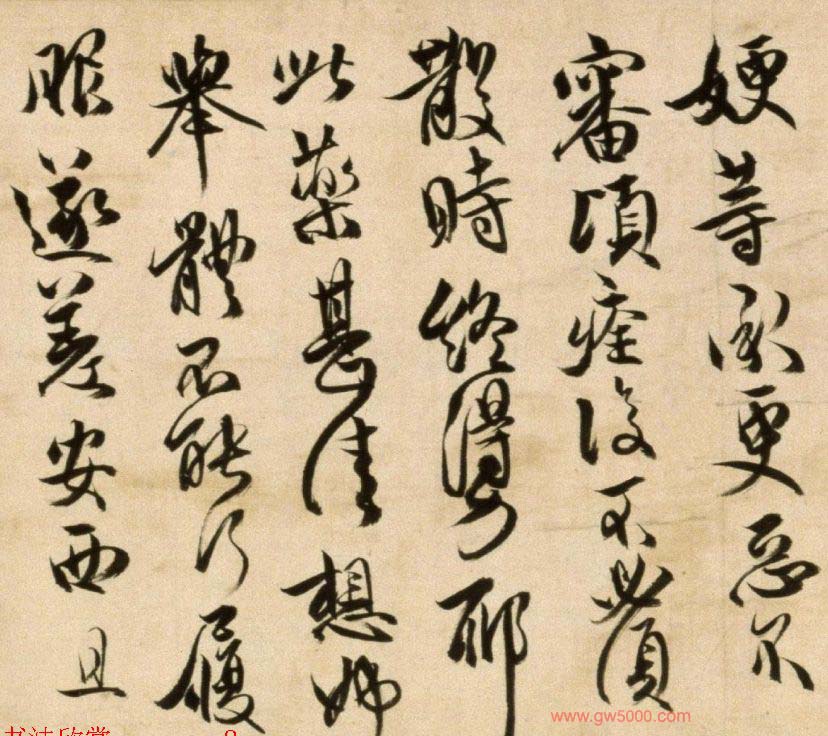 嫂等承更惡不
審頃痊復不必須
散時終得力耶
此藥甚佳想姊
舉體不能行履
服遂差安西且
www.gw5000.com
书法欣赏